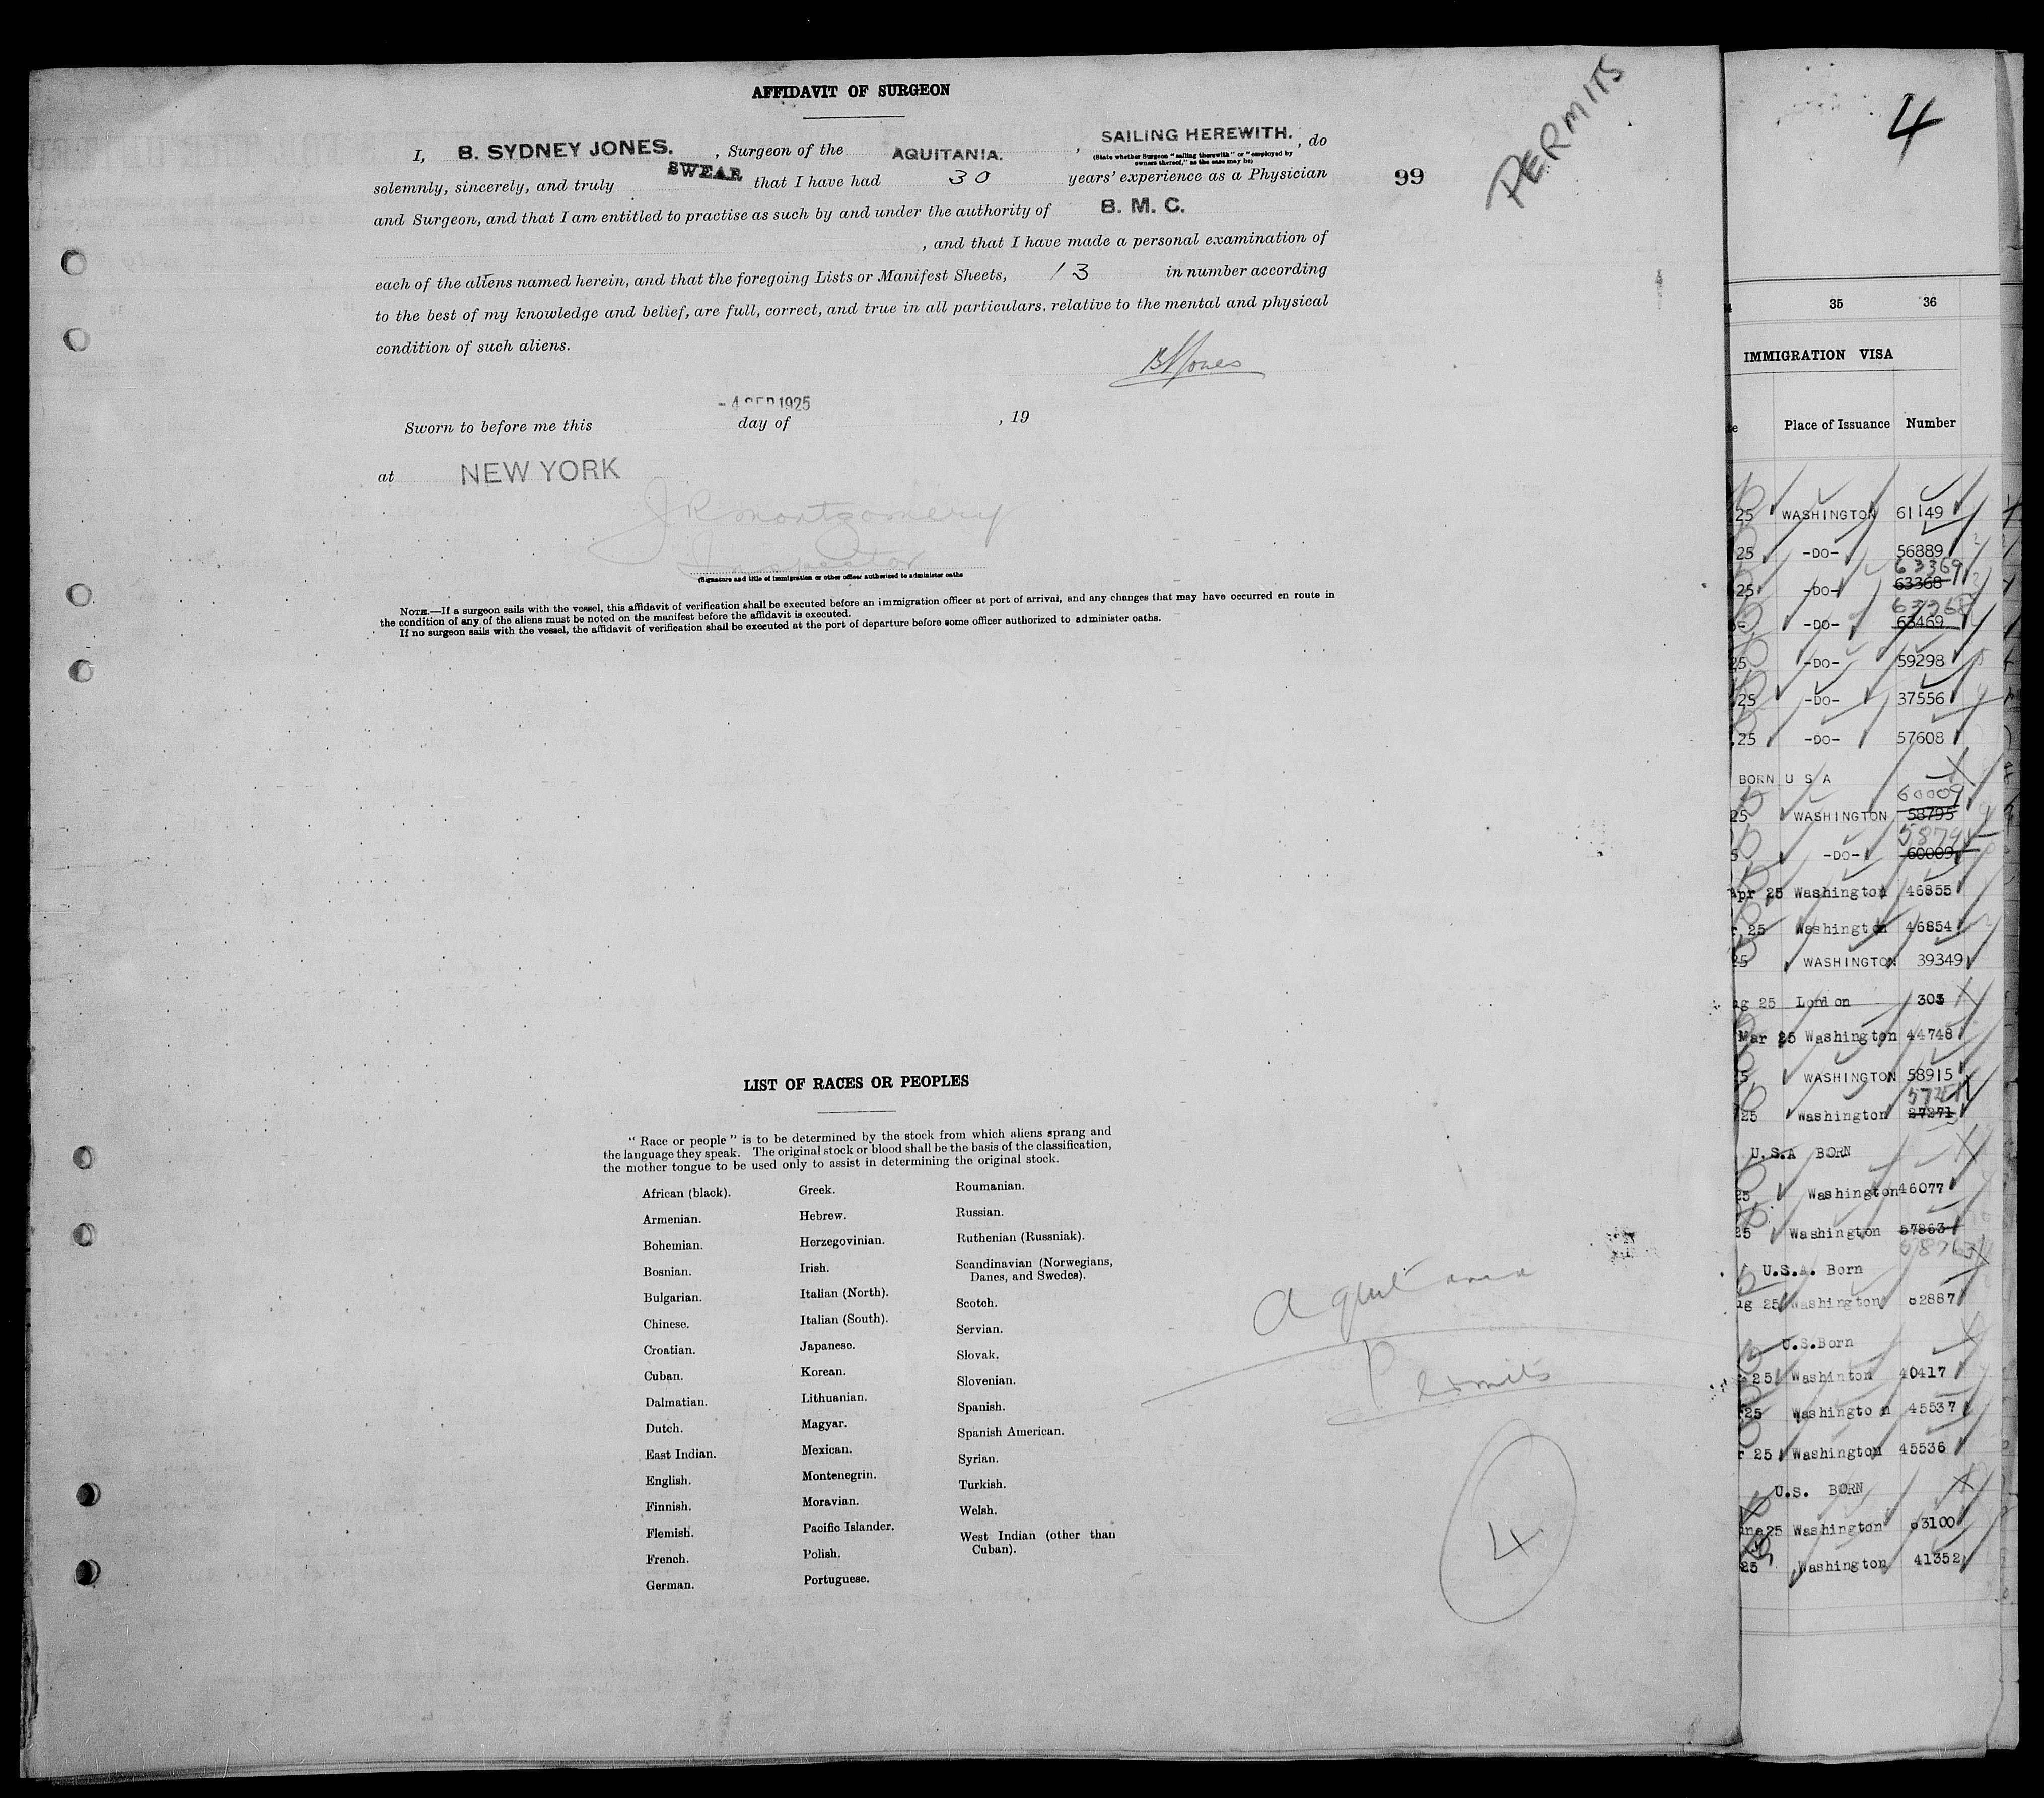 AFFIDAVIT OF SURGEON
PERMITS
I, B. SYDNEY JONES. , Surgeon of the AQUITANIA. , SAILING HEREWITH. , do
(State whether Surgeon "sailing therewith" or "employed by owners thereof," as the case may be)
solemnly, sincerely, and truly SWEAR that I have had 30 years' experience as a Physician
99
and Surgeon, and that I am entitled to practise as such by and under the authority of B. M. C.
, and that I have made a personal examination of
each of the aliens named herein, and that the foregoing Lists or Manifest Sheets, 13 in number according
to the best of my knowledge and belief, are full, correct, and true in all particulars, relative to the mental and physical
condition of such aliens.
BSJones
-4 SEP 1925
Sworn to before me this day of , 19
at NEW YORK
J R Montgomery
Inspector
(Signature and title of immigration or other officer authorized to administer oaths
NOTE.—If a surgeon sails with the vessel, this affidavit of verification shall be executed before an immigration officer at port of arrival, and any changes that may have occurred en route in
the condition of any of the aliens must be noted on the manifest before the affidavit is executed.
If no surgeon sails with the vessel, the affidavit of verification shall be executed at the port of departure before some officer authorized to administer oaths.
LIST OF RACES OR PEOPLES
" Race or people " is to be determined by the stock from which aliens sprang and
the language they speak. The original stock or blood shall be the basis of the classification,
the mother tongue to be used only to assist in determining the original stock.
African (black).
Armenian.
Bohemian.
Bosnian.
Bulgarian.
Chinese.
Croatian.
Cuban.
Dalmatian.
Dutch.
East Indian.
English.
Finnish.
Flemish.
French.
German.
Greek.
Hebrew.
Herzegovinian.
Irish.
Italian (North).
Italian (South).
Japanese.
Korean.
Lithuanian.
Magyar.
Mexican.
Montenegrin.
Moravian.
Pacific Islander.
Polish.
Portuguese.
Roumanian.
Russian.
Ruthenian (Russniak).
Scandinavian (Norwegians,
Danes, and Swedes).
Scotch.
Servian.
Slovak.
Slovenian.
Spanish.
Spanish American.
Syrian.
Turkish.
Welsh.
West Indian (other than
Cuban).
Aquitania
Permits
4
4
35 36
IMMIGRATION VISA
Place of Issuance Number
25 WASHINGTON 61149
25 -DO- 56889
63369
25 -DO- 63368
63368
-DO- 63469
25 -DO- 59298
25 -DO- 37556
25 -DO- 57608
BORN U S A
60009
25 WASHINGTON 58795
58795
-DO- 60009
Apr 25 Washington 46855
25 Washington 46854
25 WASHINGTON 39349
25 London
Mar 25 Washington 44748
WASHINGTON 58915
25 Washington 27271
U.S.A BORN
25 Washington 46077
25 Washington 57863
58763
U.S.A. Born
25 Washington 62887
U.S.Born
25 Washinton 40417
25 Washington 45537
25 Washington 45536
U.S. BORN
25 Washington 63100
25 Washington 41352